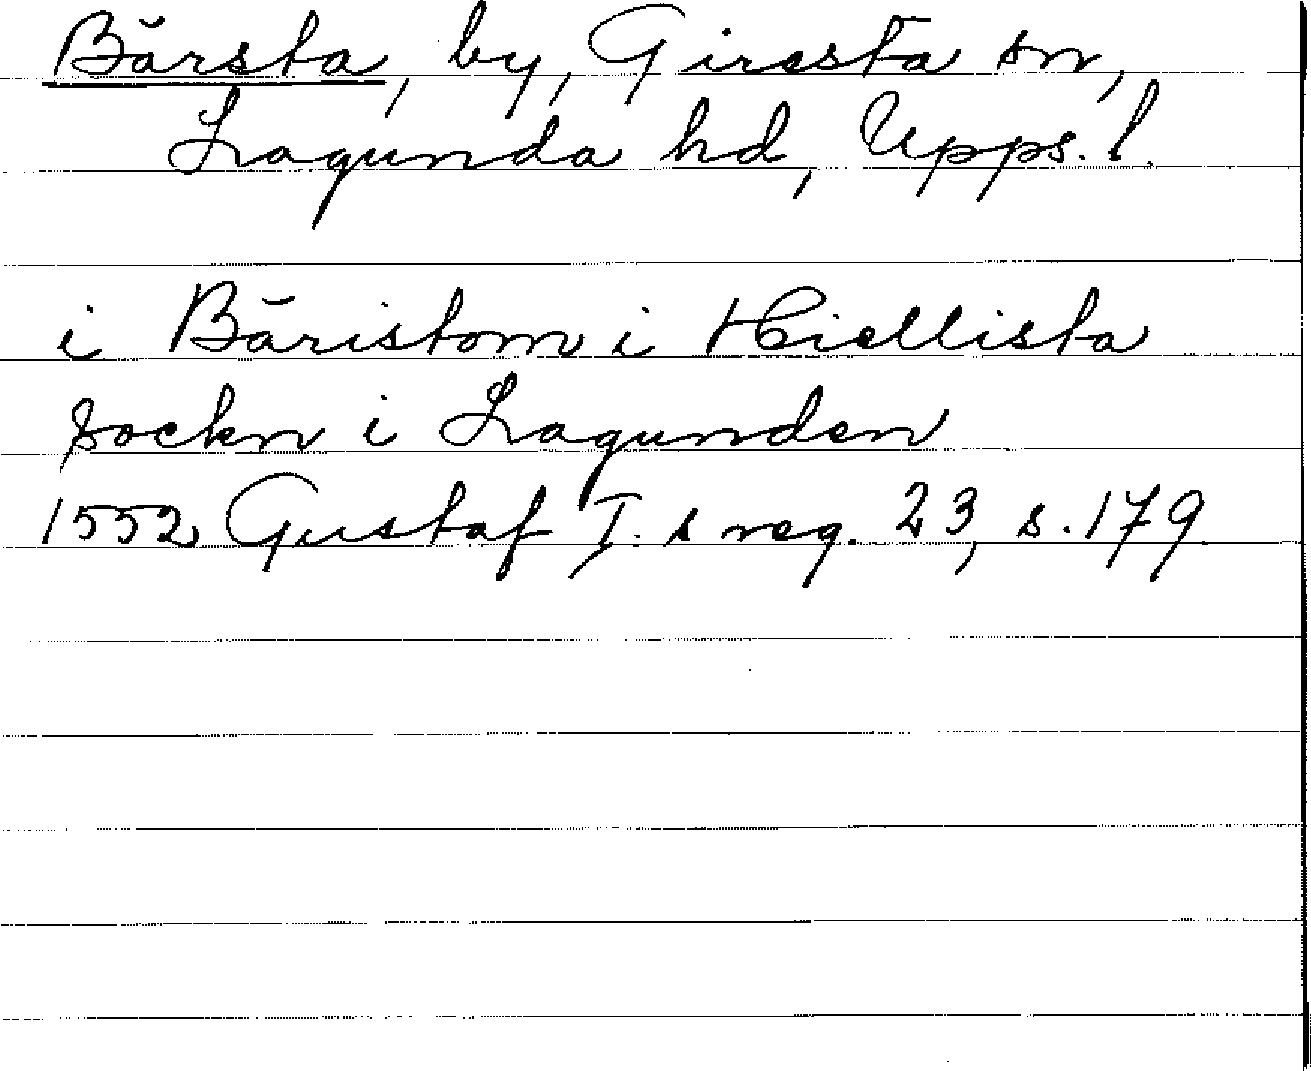 Bärsta, by, Giresta sn,
Lagunda hd, Upps. l.
i Bäristom i Hiellista
sockn i Lagunden
1552 Gustaf I. s reg. 23, s. 179